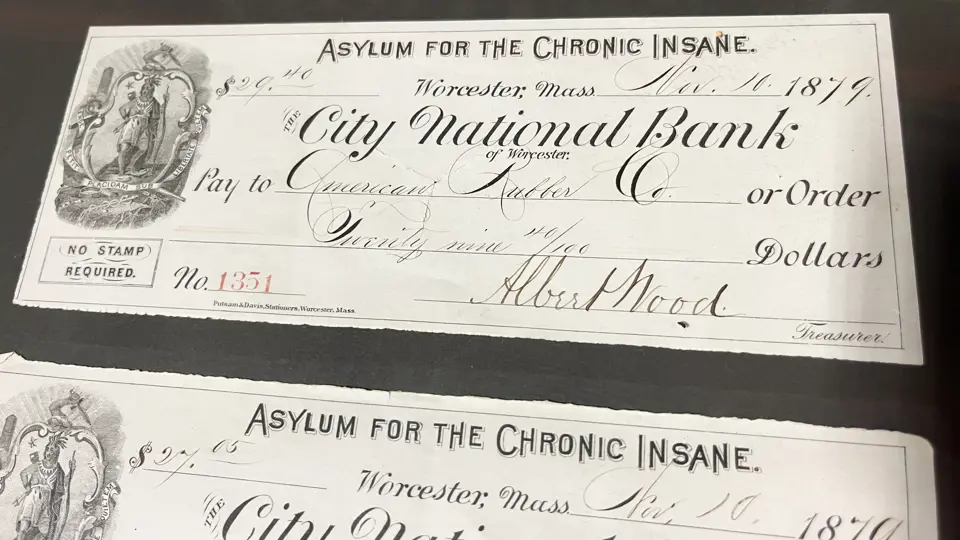 ASYLUM FOR THE CHRONIC INSANE.
$29.40
Worcester, Mass. Nov. 10. 1879.
THE City National Bank
of Worcester.
Pay to American Rubber Co. or Order
Twenty nine 40/100 Dollars
PLACIDAM SUB
NO STAMP
REQUIRED.
No. 1351
Albert Wood.
Putnam & Davis, Stationers, Worcester, Mass.
Treasurer.
ASYLUM FOR THE CHRONIC INSANE.
$27.05
Worcester, Mass. Nov. 10. 1879
THE City Nati